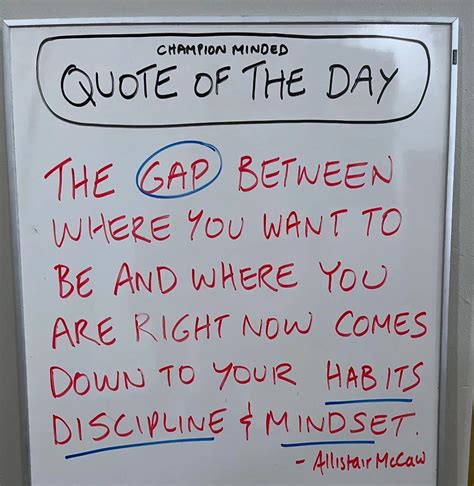 CHAMPION MINDED
QUOTE OF THE DAY
THE GAP BETWEEN
WHERE YOU WANT TO
BE AND WHERE YOU
ARE RIGHT NOW COMES
DOWN TO YOUR HABITS
DISCIPLINE & MINDSET.
- Allistair McCaw